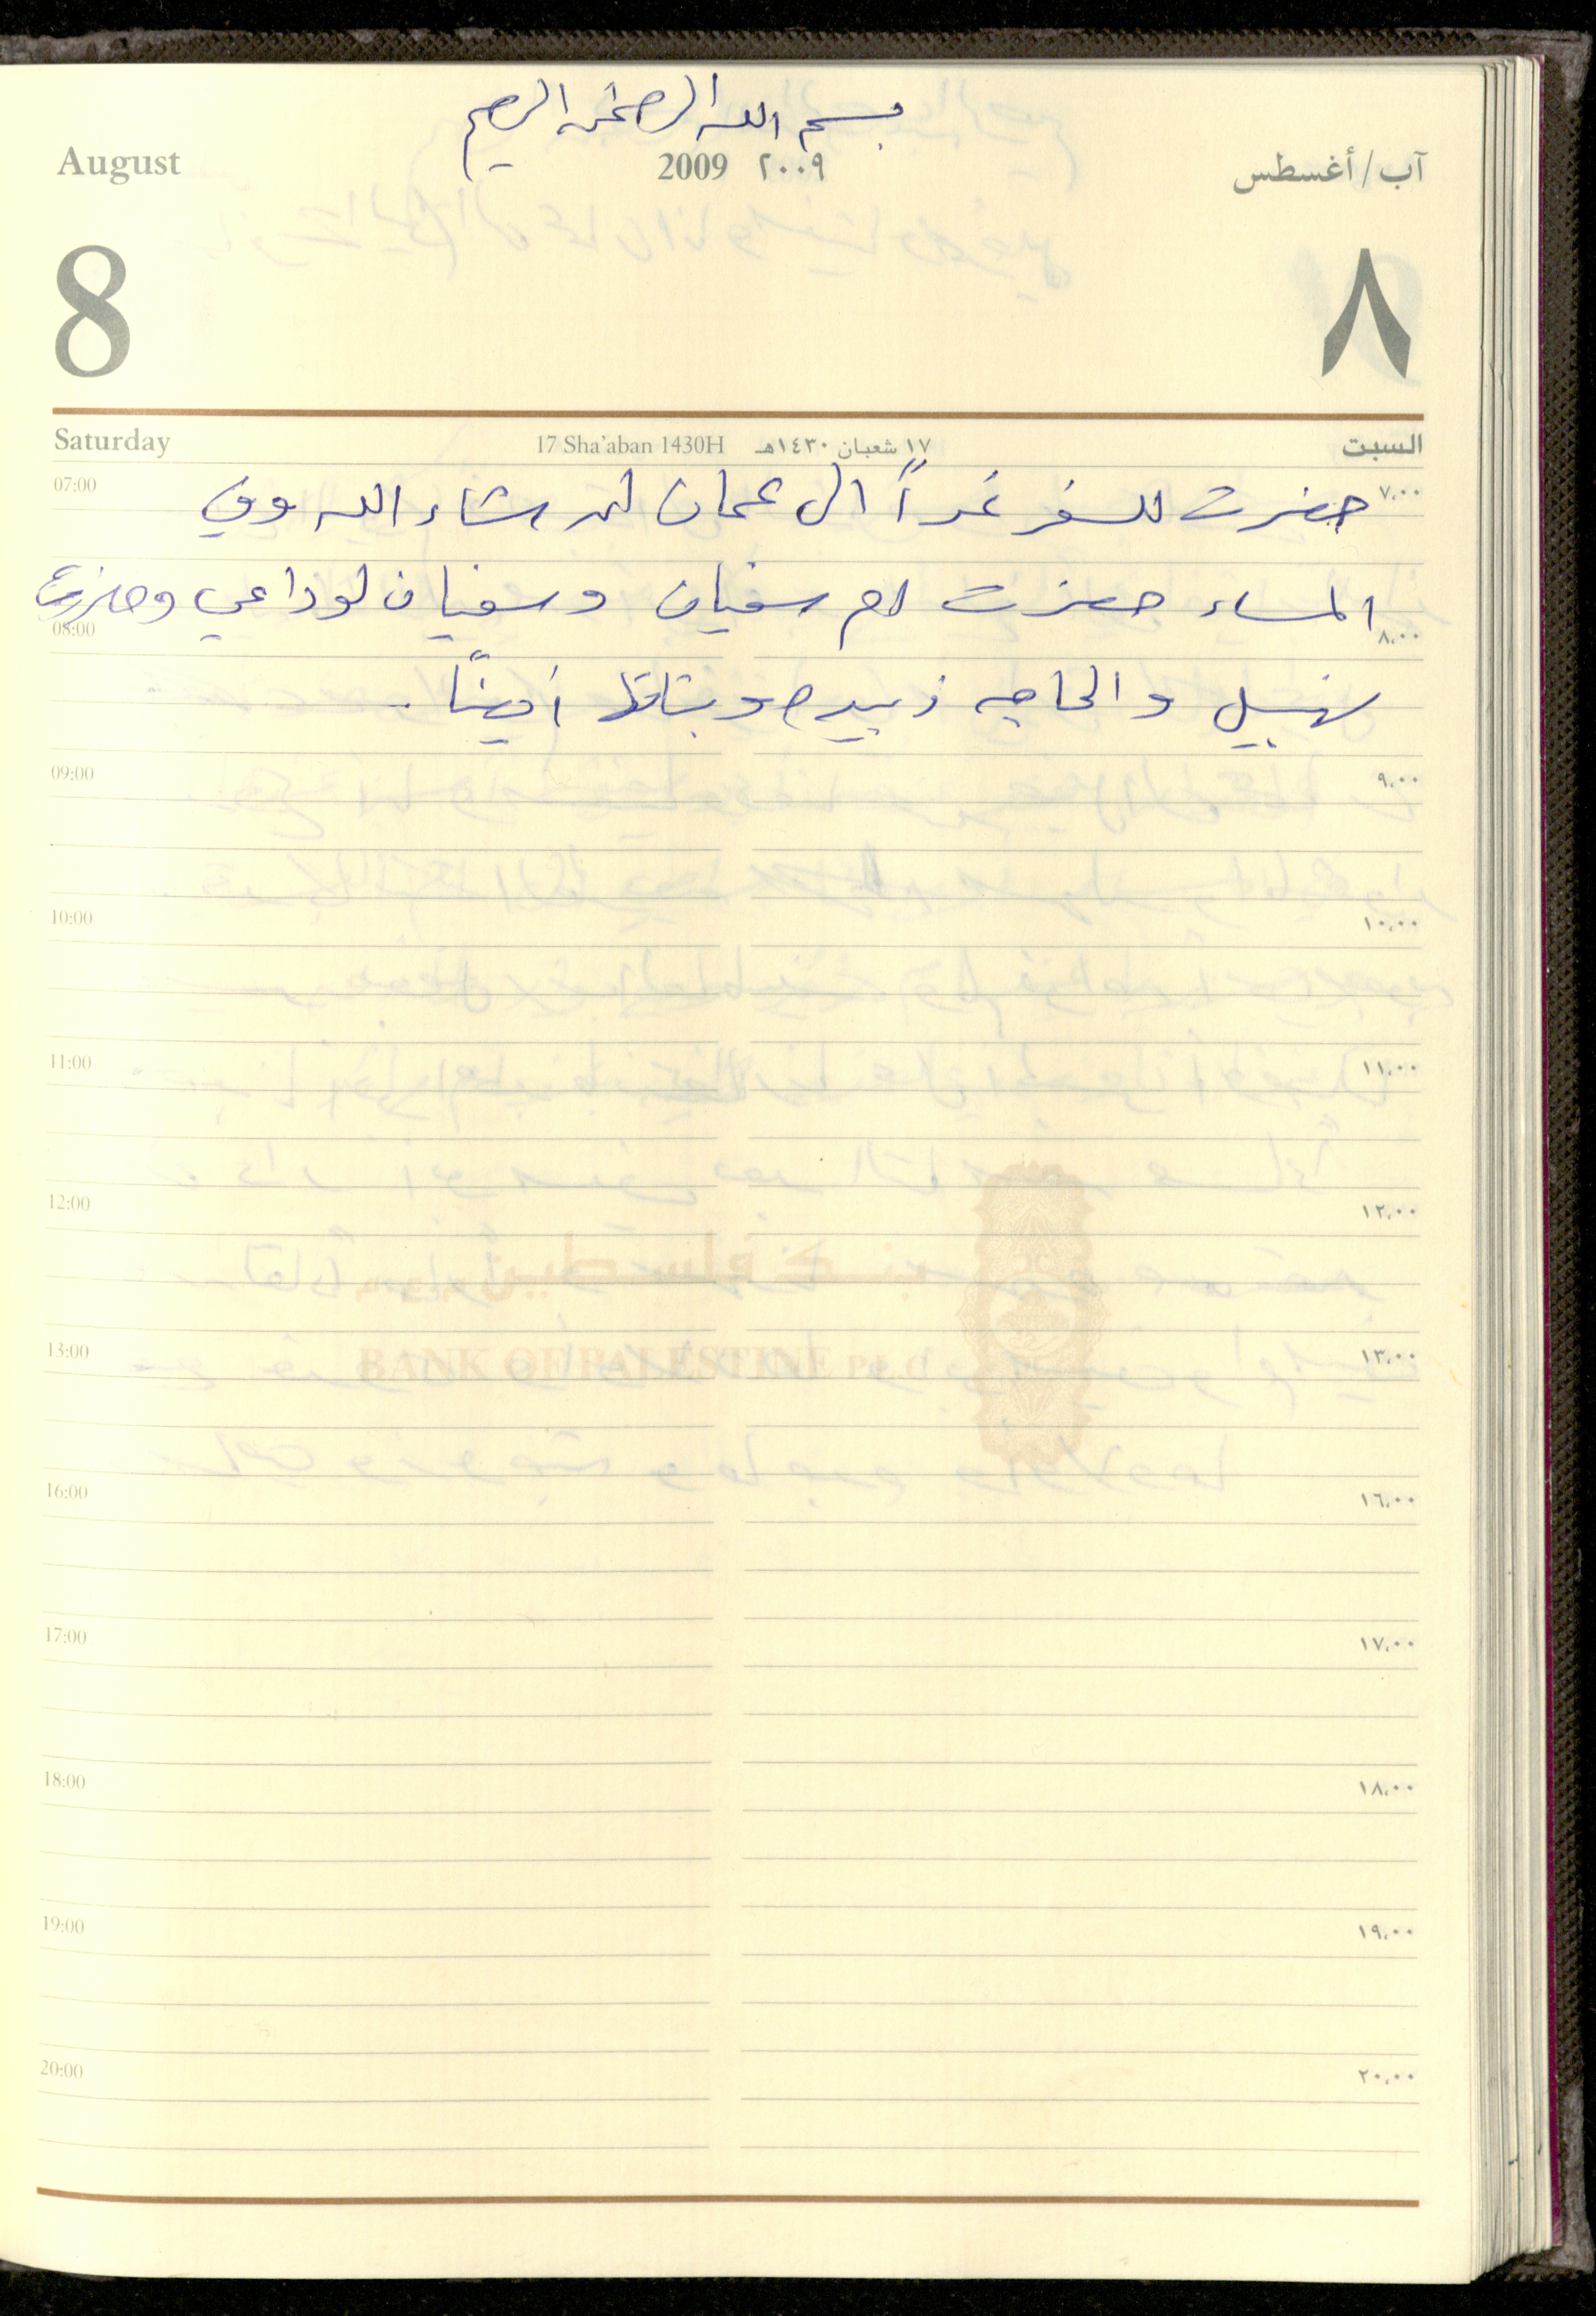 بسم الله الرحمن الرحيم
August 2009 ٢٠٠٩ آب/أغسطس
8 ٨
Saturday 17 Sha'aban 1430H ١٧ شعبان ١٤٣٠هـ السبت
07:00 ٧،٠٠
حضرت للسفر غداً الى عمان ان شاء الله وفي
المساء حضرت ام سفيان وسفيان لوداعي وحضرت
08:00 ٨،٠٠
نبيل والحاجه زبيده وبناتها أيضاً.
09:00 ٩،٠٠
10:00 ١٠،٠٠
11:00 ١١،٠٠
12:00 ١٢،٠٠
بنك فلسطين
13:00 ١٣،٠٠
BANK OF PALESTINE P.L.C
16:00 ١٦،٠٠
17:00 ١٧،٠٠
18:00 ١٨،٠٠
19:00 ١٩،٠٠
20:00 ٢٠،٠٠